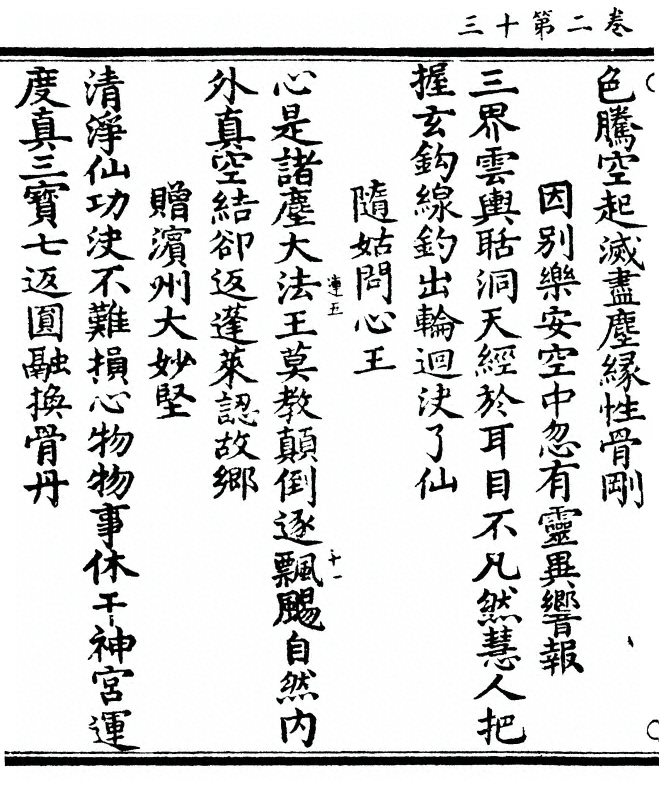 卷二第十三
色騰空起滅盡塵緣性骨剛
因别樂安空中忽有靈異響報
三界雲輿聒洞天經於耳目不凡然慧人把
握玄鈎線釣出輪迴决了仙
隨姑問心王
心是諸塵大法王莫教顛倒逐飄颺自然内
外真空結卻返蓬萊認故鄉
贈濱州大妙堅
清淨仙功决不難損心物物事休干神宮運
度真三寶七返圓融換骨丹